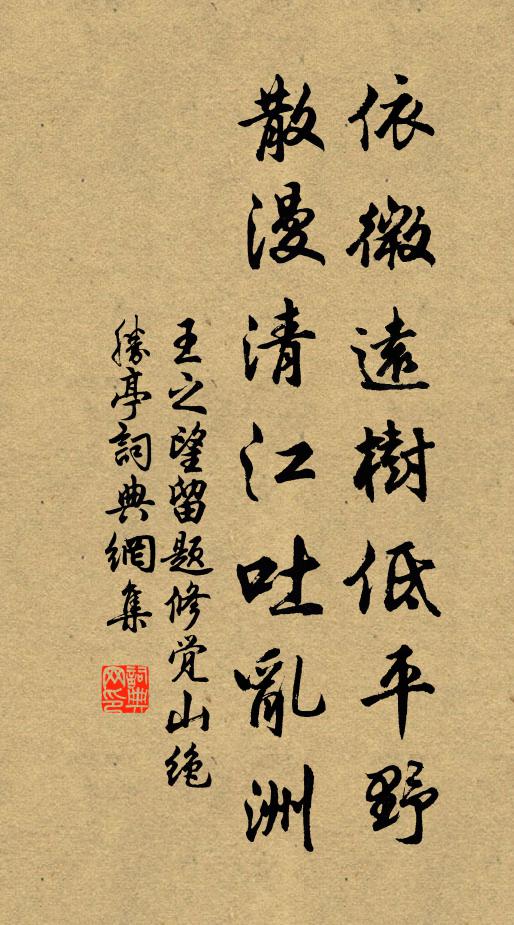 依微遠樹低平野
散漫清江吐亂洲
王之望留題修觉山绝
勝亭詞典網集
詞典網印